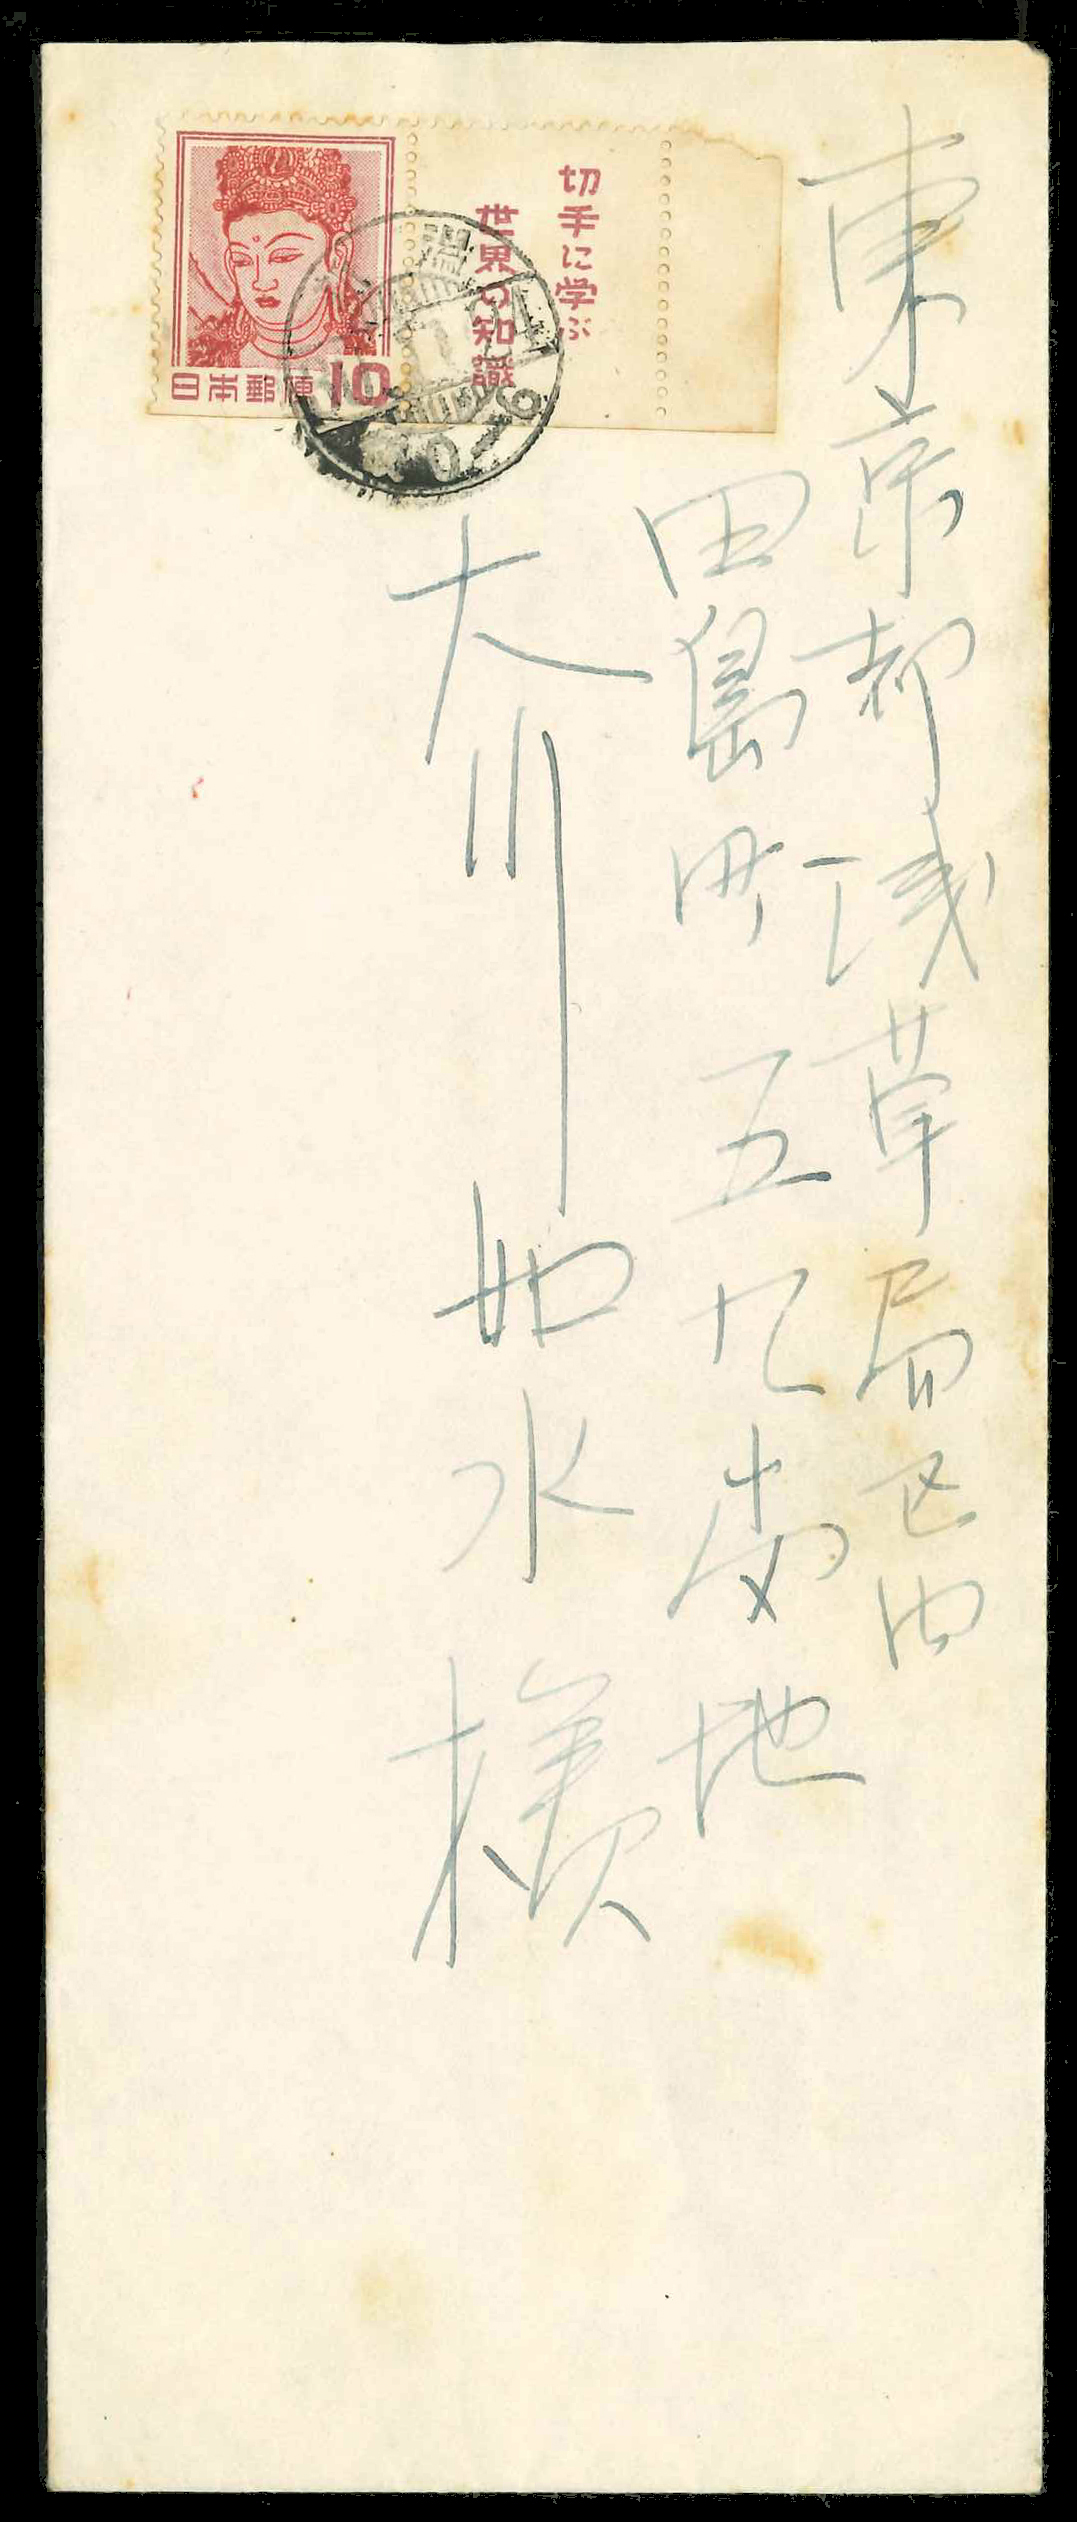 東京都浅草局区内
田島町五九番地
大川如水様
切手に学ぶ
世界の知識
日本郵便 10